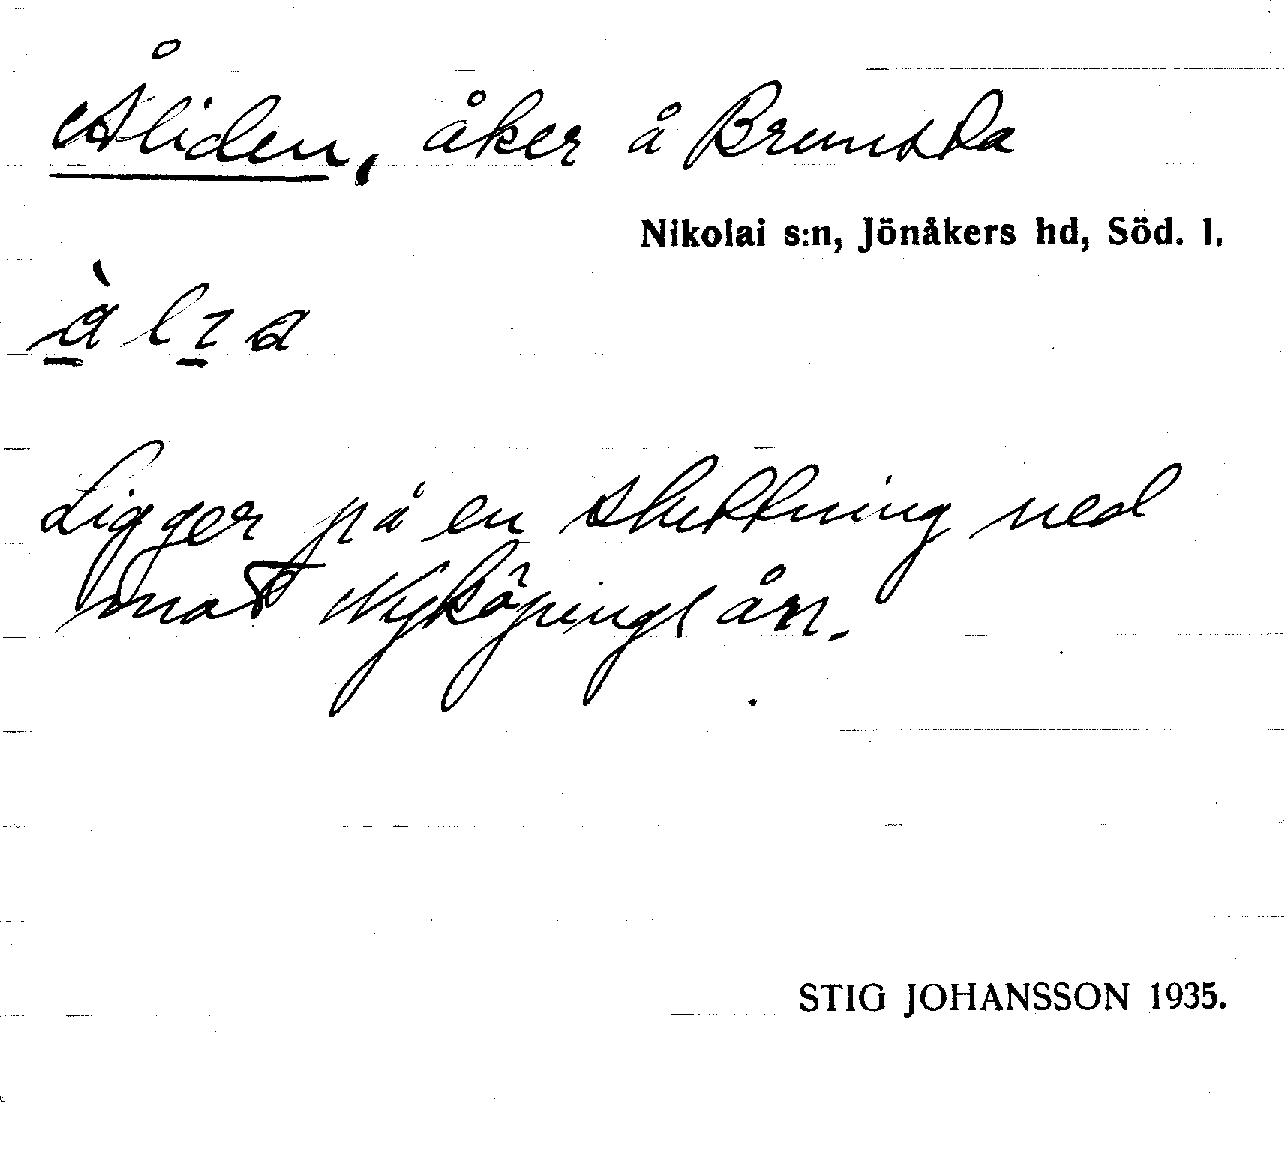 Åliden, åker å Brunsta
Nikolai s:n, Jönåkers hd, Söd. l.
Ligger på en sluttning ned
mot Nyköpingsån.
STIG JOHANSSON 1935.